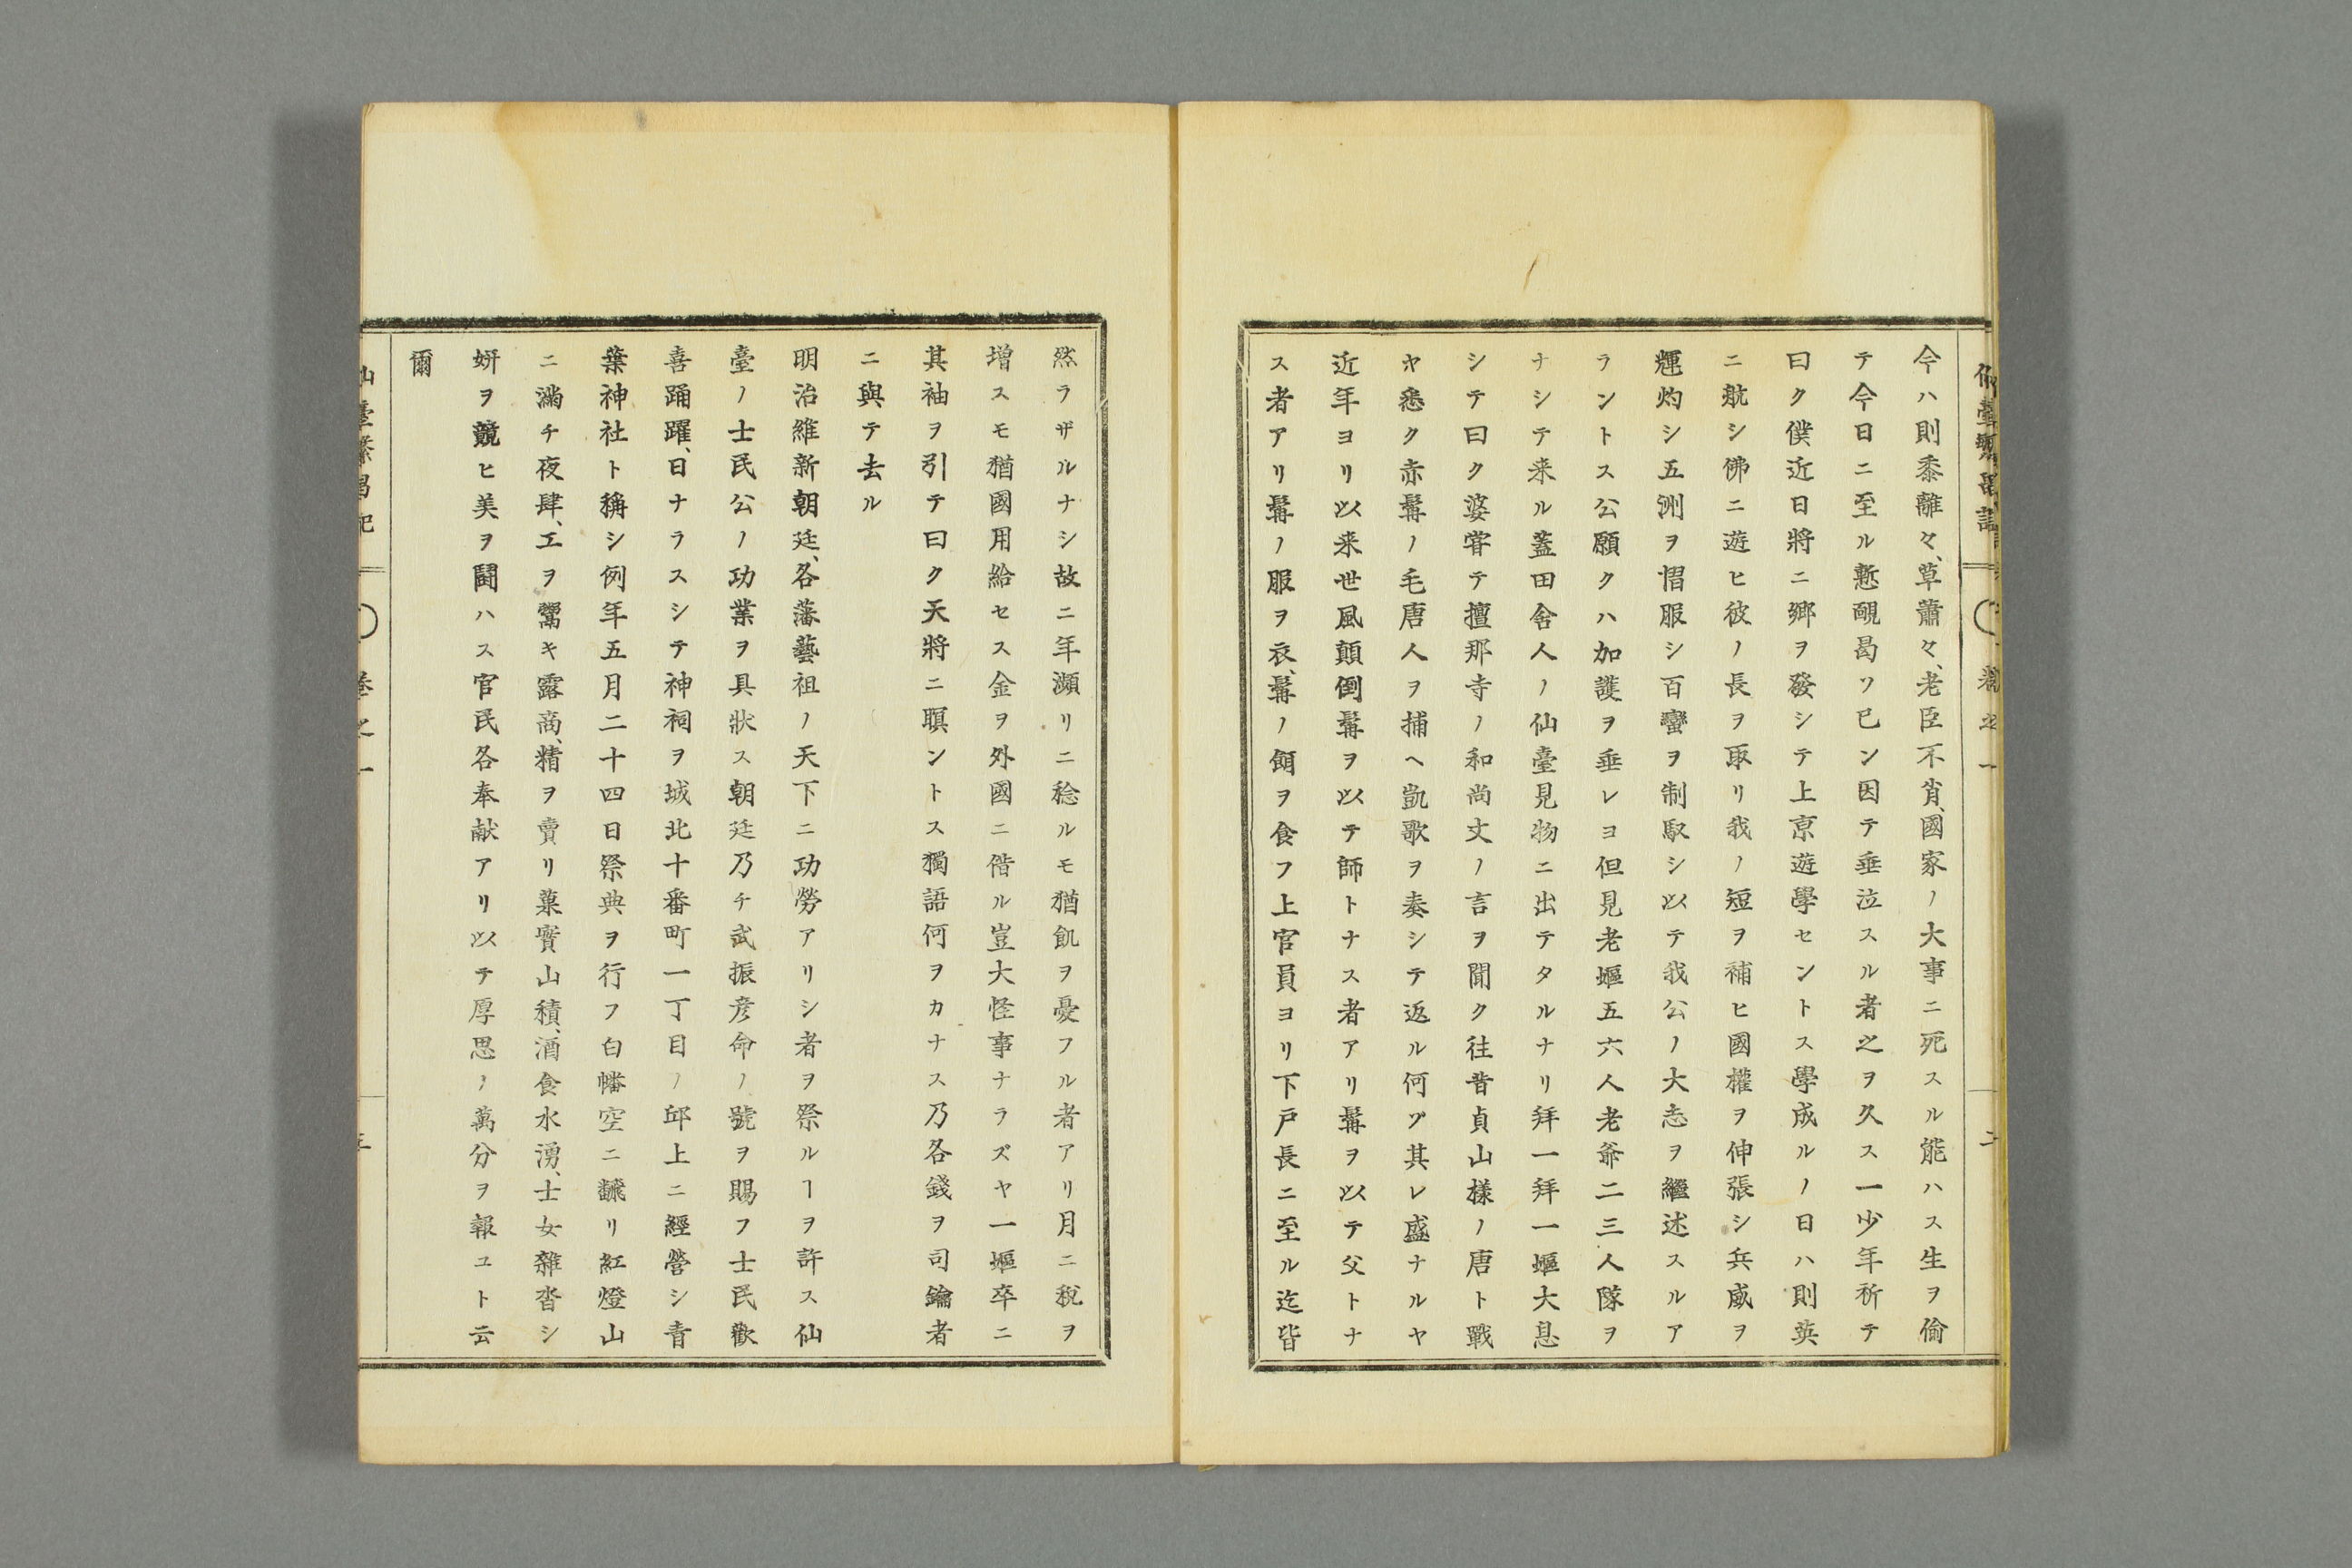 今ハ則黍離々、草蕭々、老臣不肖、國家ノ大事ニ死スル能ハス生ヲ偷
テ今日ニ至ル慙靦曷ソ已ン因テ垂泣スル者之ヲ久ス一少年祈テ
曰ク僕近日將ニ郷ヲ發シテ上京遊學セントス學成ルノ日ハ則英
ニ航シ佛ニ遊ヒ彼ノ長ヲ取リ我ノ短ヲ補ヒ國權ヲ伸張シ兵威ヲ
輝灼シ五洲ヲ慴服シ百蠻ヲ制馭シ以テ我公ノ大志ヲ繼述スルア
ラントス公願クハ加護ヲ垂レヨ但見老嫗五六人老爺二三人隊ヲ
ナシテ来ル蓋田舎人ノ仙臺見物ニ出テタルナリ拜一拜一嫗大息
シテ曰ク婆甞テ擅那寺ノ和尚丈ノ言ヲ聞ク往昔貞山樣ノ唐ト戰
ヤ悉ク赤髯ノ毛唐人ヲ捕ヘ凱歌ヲ奏シテ返ル何ゾ其レ盛ナルヤ
近年ヨリ以来世風顛倒髯ヲ以テ師トナス者アリ髯ヲ以テ父トナ
ス者アリ髯ノ服ヲ衣、髯ノ餉ヲ食フ上官員ヨリ下戸長ニ至ル迄皆
然ラザルナシ故ニ年瀕リニ稔ルモ猶飢ヲ憂フル者アリ月ニ税ヲ
増スモ猶國用給セス金ヲ外國ニ偕ル豈大怪事ナラズヤ一嫗卒ニ
其袖ヲ引テ曰ク天將ニ暝ントス獨語何ヲカナス乃各錢ヲ司鑰者
ニ與テ去ル
明治維新朝廷、各藩藝祖ノ天下ニ功勞アリシ者ヲ祭ルヿヲ許ス仙
臺ノ士民公ノ功業ヲ具狀ス朝廷乃チ武振彦命ノ號ヲ賜フ士民歡
喜踊躍、日ナラスシテ神祠ヲ城北十番町一丁目ノ邱上ニ經營シ青
葉神社ト稱シ例年五月二十四日祭典ヲ行フ白幡空ニ飜リ紅燈山
ニ滿チ夜肆、工ヲ鬻キ露商、精ヲ賣リ菓實山積、酒食水湧、士女雜沓シ
妍ヲ競ヒ美ヲ鬪ハス官民各奉献アリ以テ厚思ノ萬分ヲ報ユト云
爾